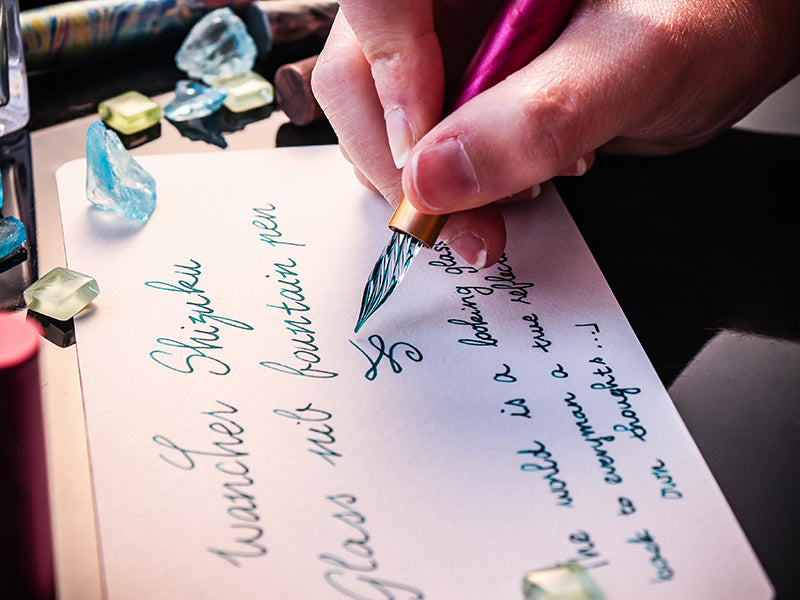 Wancher Shizuku
Glass nib fountain pen
The world is a looking glass
back to everyman a true
own thoughts...